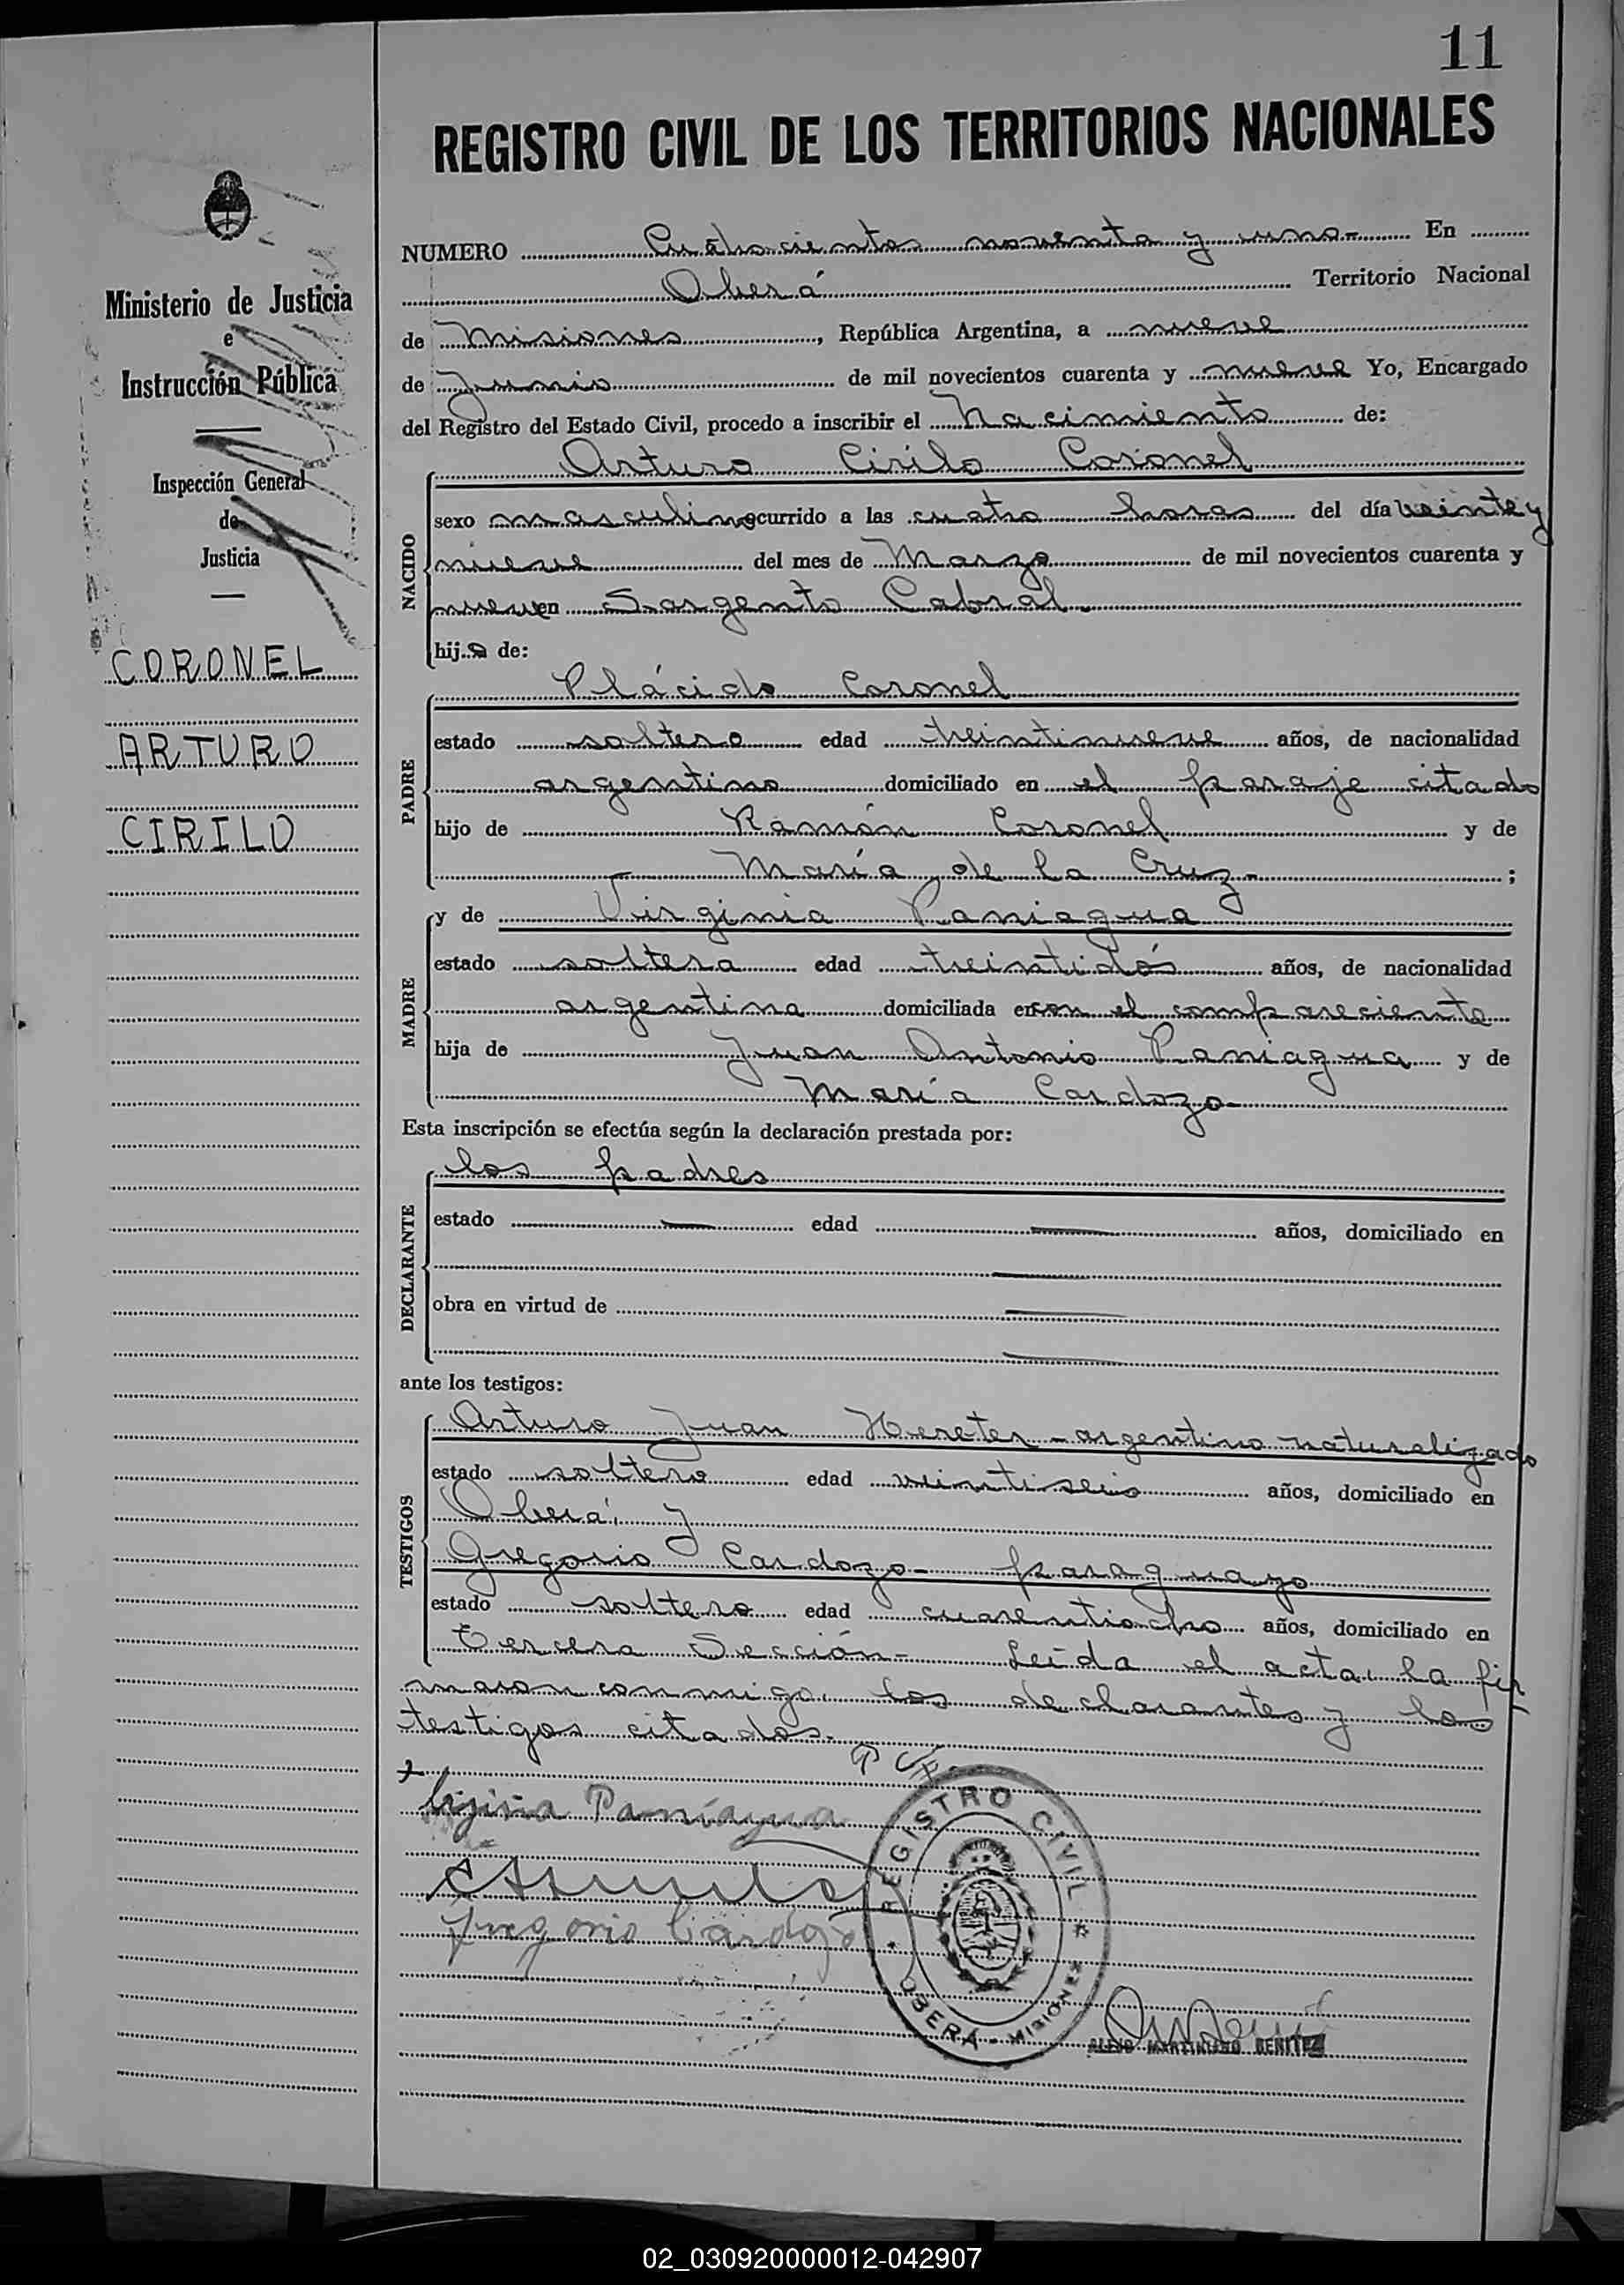 11
REGISTRO CIVIL DE LOS TERRITORIOS NACIONALES
Ministerio de Justicia
e
Instrucción Pública
Inspección General
de
Justicia
CORONEL
ARTURO
CIRILO
NUMERO Cuatrocientos noventa y uno.- En
Oberá Territorio Nacional
de Misiones, República Argentina, a nueve
de Junio de mil novecientos cuarenta y nueve Yo, Encargado
del Registro del Estado Civil, procedo a inscribir el Nacimiento de:
Arturo Cirilo Coronel
NACIDO
sexo masculino ocurrido a las cuatro horas del día veinte y
nueve del mes de Marzo de mil novecientos cuarenta y
nueve en Sargento Cabral.
hijo de:
Plácido Coronel
PADRE
estado soltero edad treintinueve años, de nacionalidad
argentino domiciliado en el paraje citado
hijo de Ramón Coronel y de
María de la Cruz.- ;
MADRE
y de Virginia Paniagua
estado soltera edad treintidós años, de nacionalidad
argentina domiciliada en con el compareciente
hija de Juan Antonio Paniagua y de
María Cardozo.-
Esta inscripción se efectúa según la declaración prestada por:
DECLARANTE
los padres
estado — edad — años, domiciliado en
—
obra en virtud de —
—
ante los testigos:
TESTIGOS
Arturo Juan - argentino naturalizado
estado soltero edad veintiseis años, domiciliado en
Oberá, y
Gregorio Cardozo - paraguayo
estado soltero edad cuarentiocho años, domiciliado en
Tercera Sección.- Leída el acta, la fir
maron conmigo los declarantes y los
testigos citados.-
P C
Virjinia Paniagua
Gregorio Cardozo
REGISTRO CIVIL
OBERÁ - MISIONES
ALEJO MARTINIANO BENITEZ
02_030920000012-042907